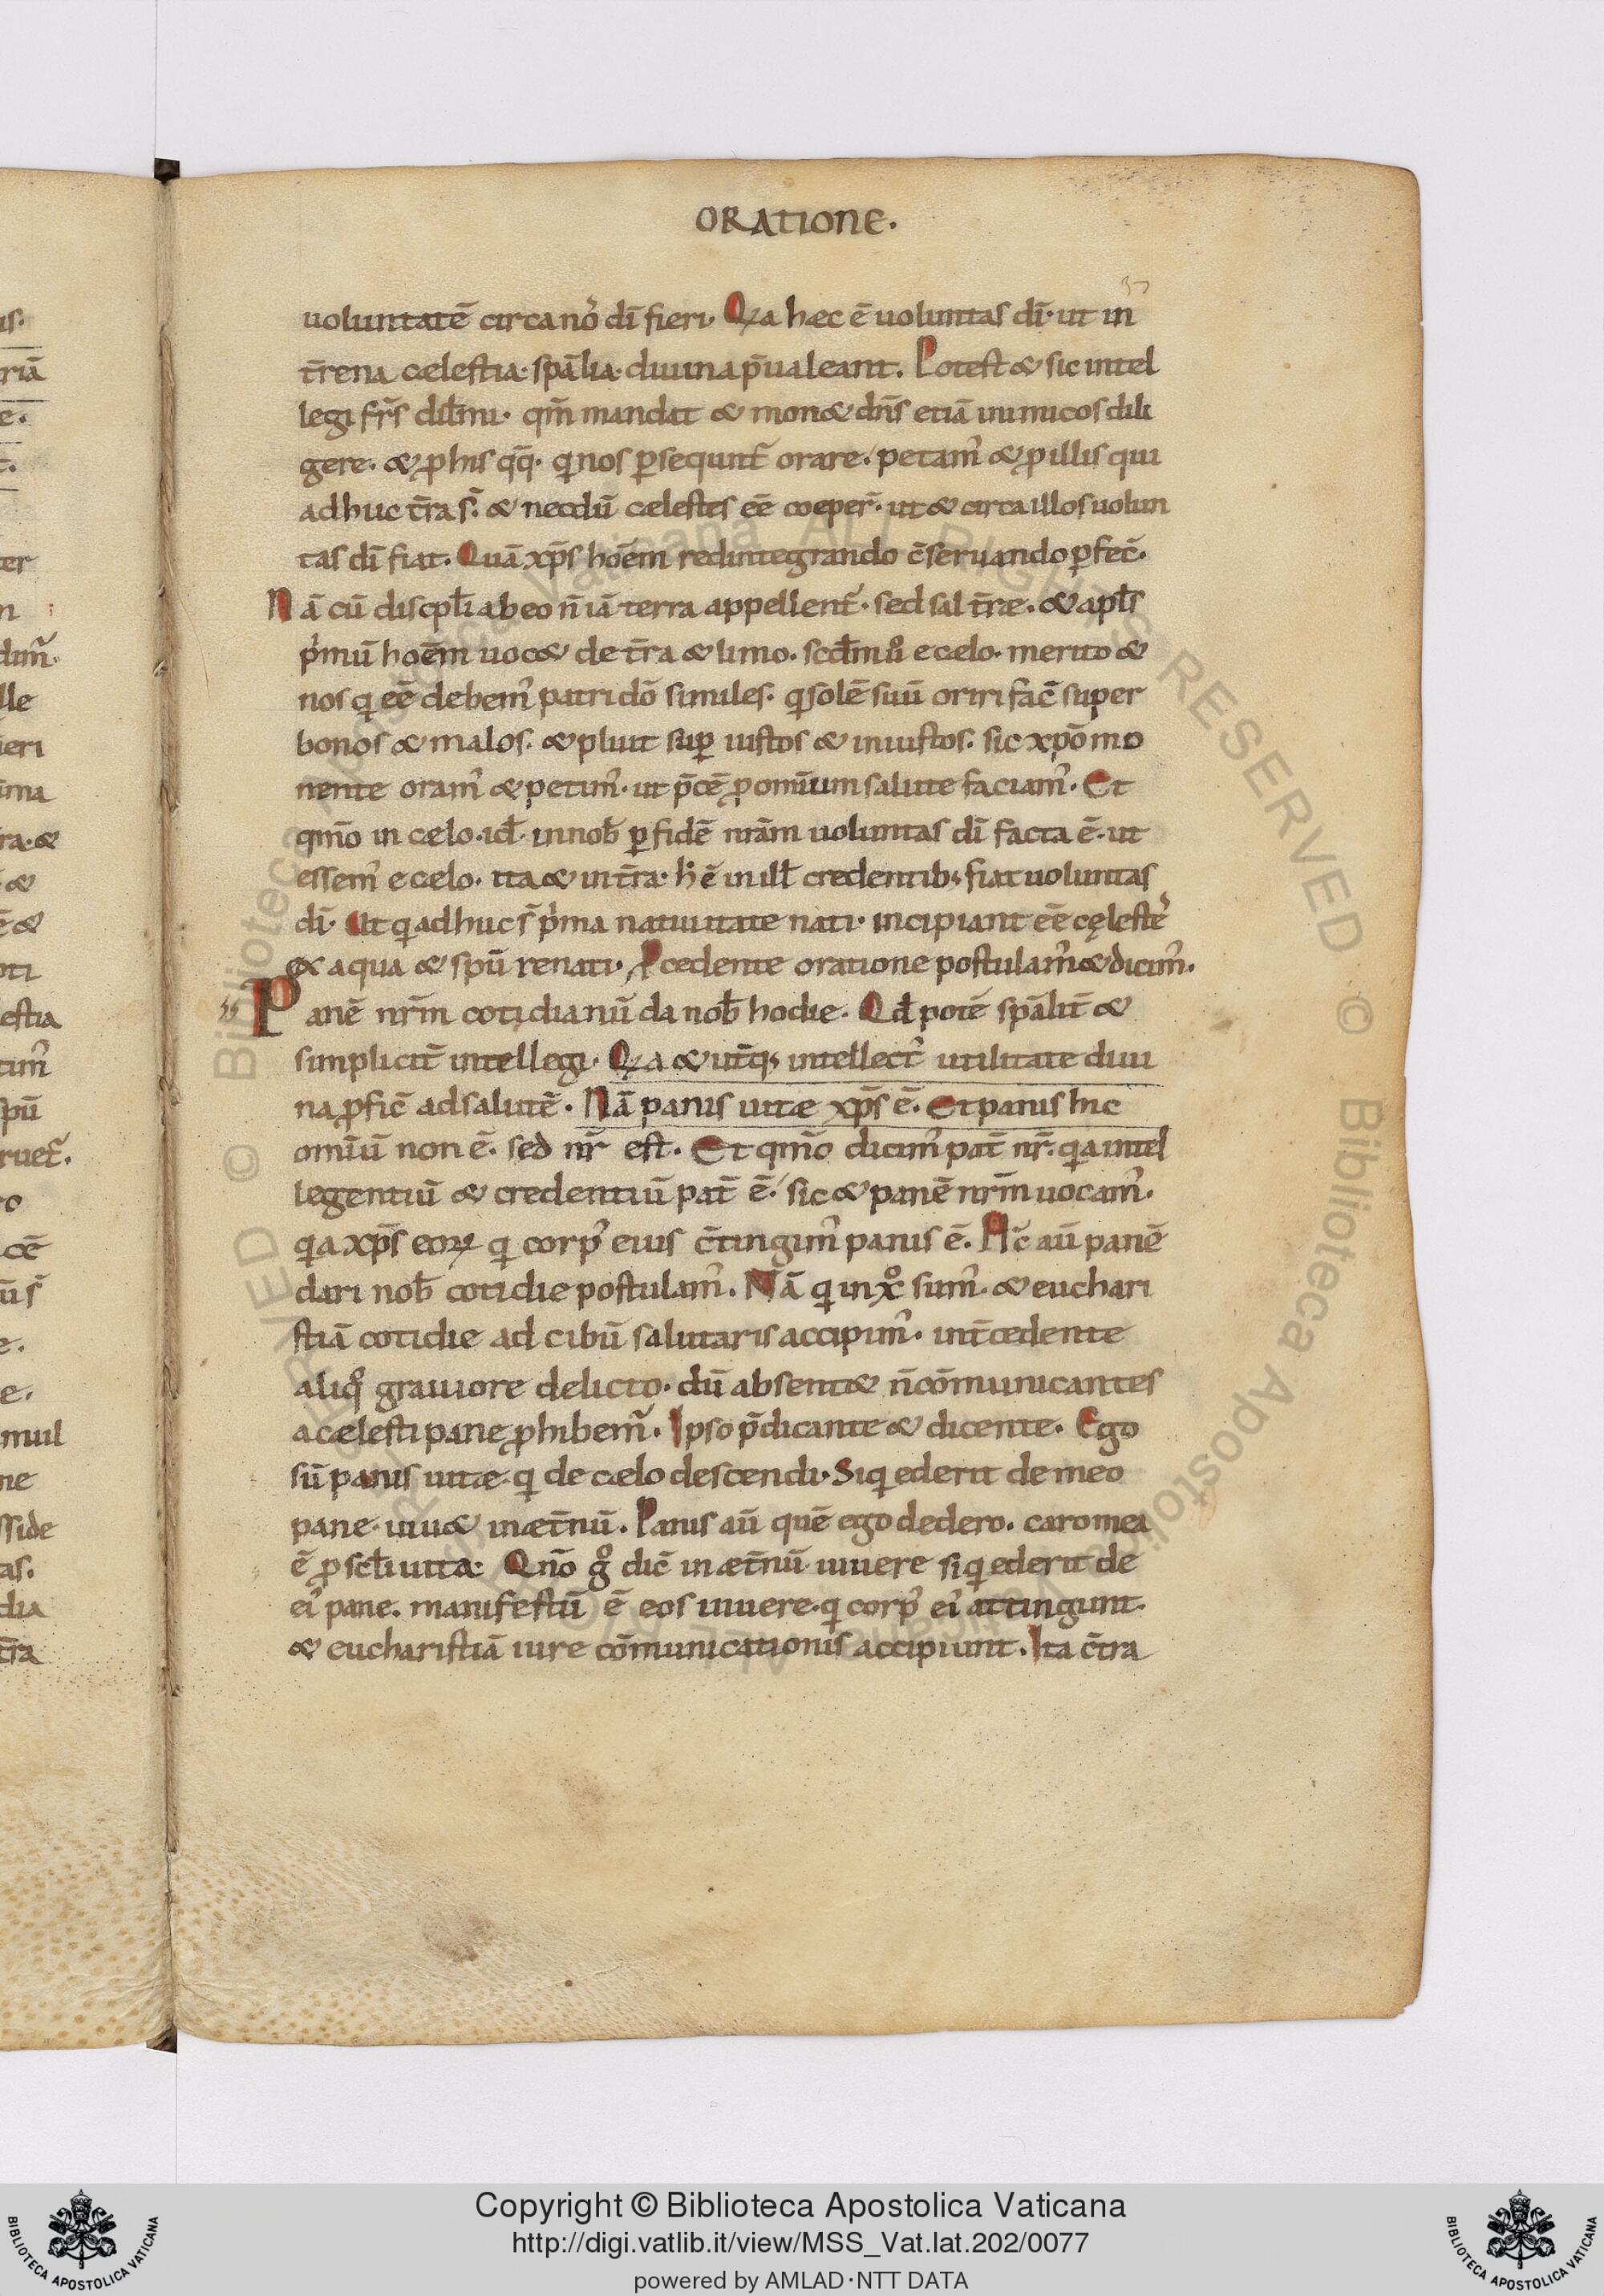 ORATIONE.
37
uoluntatē circa nos̉ dī fieri· Qꝛa hæc ē uoluntas dī· ut in
t̄rena cælestia· spālia· diuina p̄ualeant. Potest & sic intel
legi fr̄s dil̄mi· qm̄ mandat & mon& dn̄s etiā inimicos dili
gere· & ꝓ his q̄q̄· qi nos ꝑsequunt᷑ orare· petam᾿ & ꝓ illis qui
adhuc t̄ra s̄· & necdū cælestes eē coeper̄· ut & circa illos uolun
tas dī fiat. Quā xp̄s hoēm redintegrando c̄seruando ꝑfec̄·
Nā cū discipl̄i ab eo n̄ iā terra appellent᷑· sed sal t̄ræ· & apl̄s
pⁱmū hoēm uoc& de t̄ra & limo· scd̄m uͦ e celo· merito &
nos qi eē debem᾿ patri dō similes· qi solē suū oriri fac̄ super
bonos & malos· & pluit suꝑ iustos & iniustos· sic xp̄o mo
nente oram᾿ & petim᾿· ut p̄cē ꝓ omīum salute faciam᾿· Et
qm̄o in celo· id̄· in nob̄ ꝑ fidē nr̄am uoluntas dī facta ē· ut
essem᾿ e celo· ita & in t̄ra· h̄ ē in ill̄ credentib; fiat uoluntas
dī· Ut qi adhuc s̄ pⁱma natiuitate nati· incipiant eē cęlestēs
ex aqua & spū renati· Ꝓcedente oratione postulam᾿ & dicim᾿·
" Panē nr̄m cotidianū da nob̄ hodie· Qd̄ potē spālit̄ &
simplicit̄ intellegi· Qꝛa & ut̄q; intellect᾿ utilitate diui
na ꝓfic̄ ad salutē· Nā panis uitæ xp̄s ē· Et panis hic
omīū non ē· sed nr̄ est· Et qm̄o dicim᾿ pat̄ nr̄· qia intel
legentiū & credentiū pat̄ ē· sic & panē nr̄m uocam᾿·
qia xp̄s eoꝝ qi corp᾿ eius c̄tingim᾿ panis ē· Hc̄ aū panē
dari nob̄ cotidie postulam᾿· Nā qi in xͦ sum᾿· & euchari
stiā cotidie ad cibū salutaris accipim᾿· int̄cedente
aliqͦ grauiore delicto· dū absent& n̄ cōmunicantes
a cælesti pane ꝓhibem᷑· Ipso p̄dicante & dicente· Ego
sū panis uitæ· qi de cælo descendi· Siqi ederit de meo
pane· uiu& in æt̄nū· Panis aū quē ego dedero· caro mea
ē ꝓ scl̄i uita· Qn̄o gͦ dic̄ in æt̄nū uiuere siqi ederit de
ei᾿ pane· manifestū ē eos uiuere· qi corp᾿ ei᾿ attingunt·
& eucharistiā iure cōmunicationis accipiunt· Ita c̄tra
Copyright © Biblioteca Apostolica Vaticana
http://digi.vatlib.it/view/MSS_Vat.lat.202/0077
powered by AMLAD·NTT DATA
BIBLIOTECA APOSTOLICA VATICANA
BIBLIOTECA APOSTOLICA VATICANA